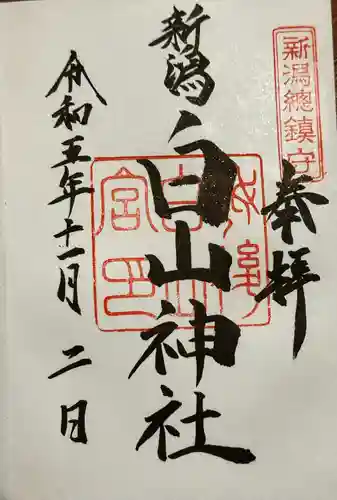 新潟總鎮守
奉拝
新潟
白山神社
令和五年十一月二日